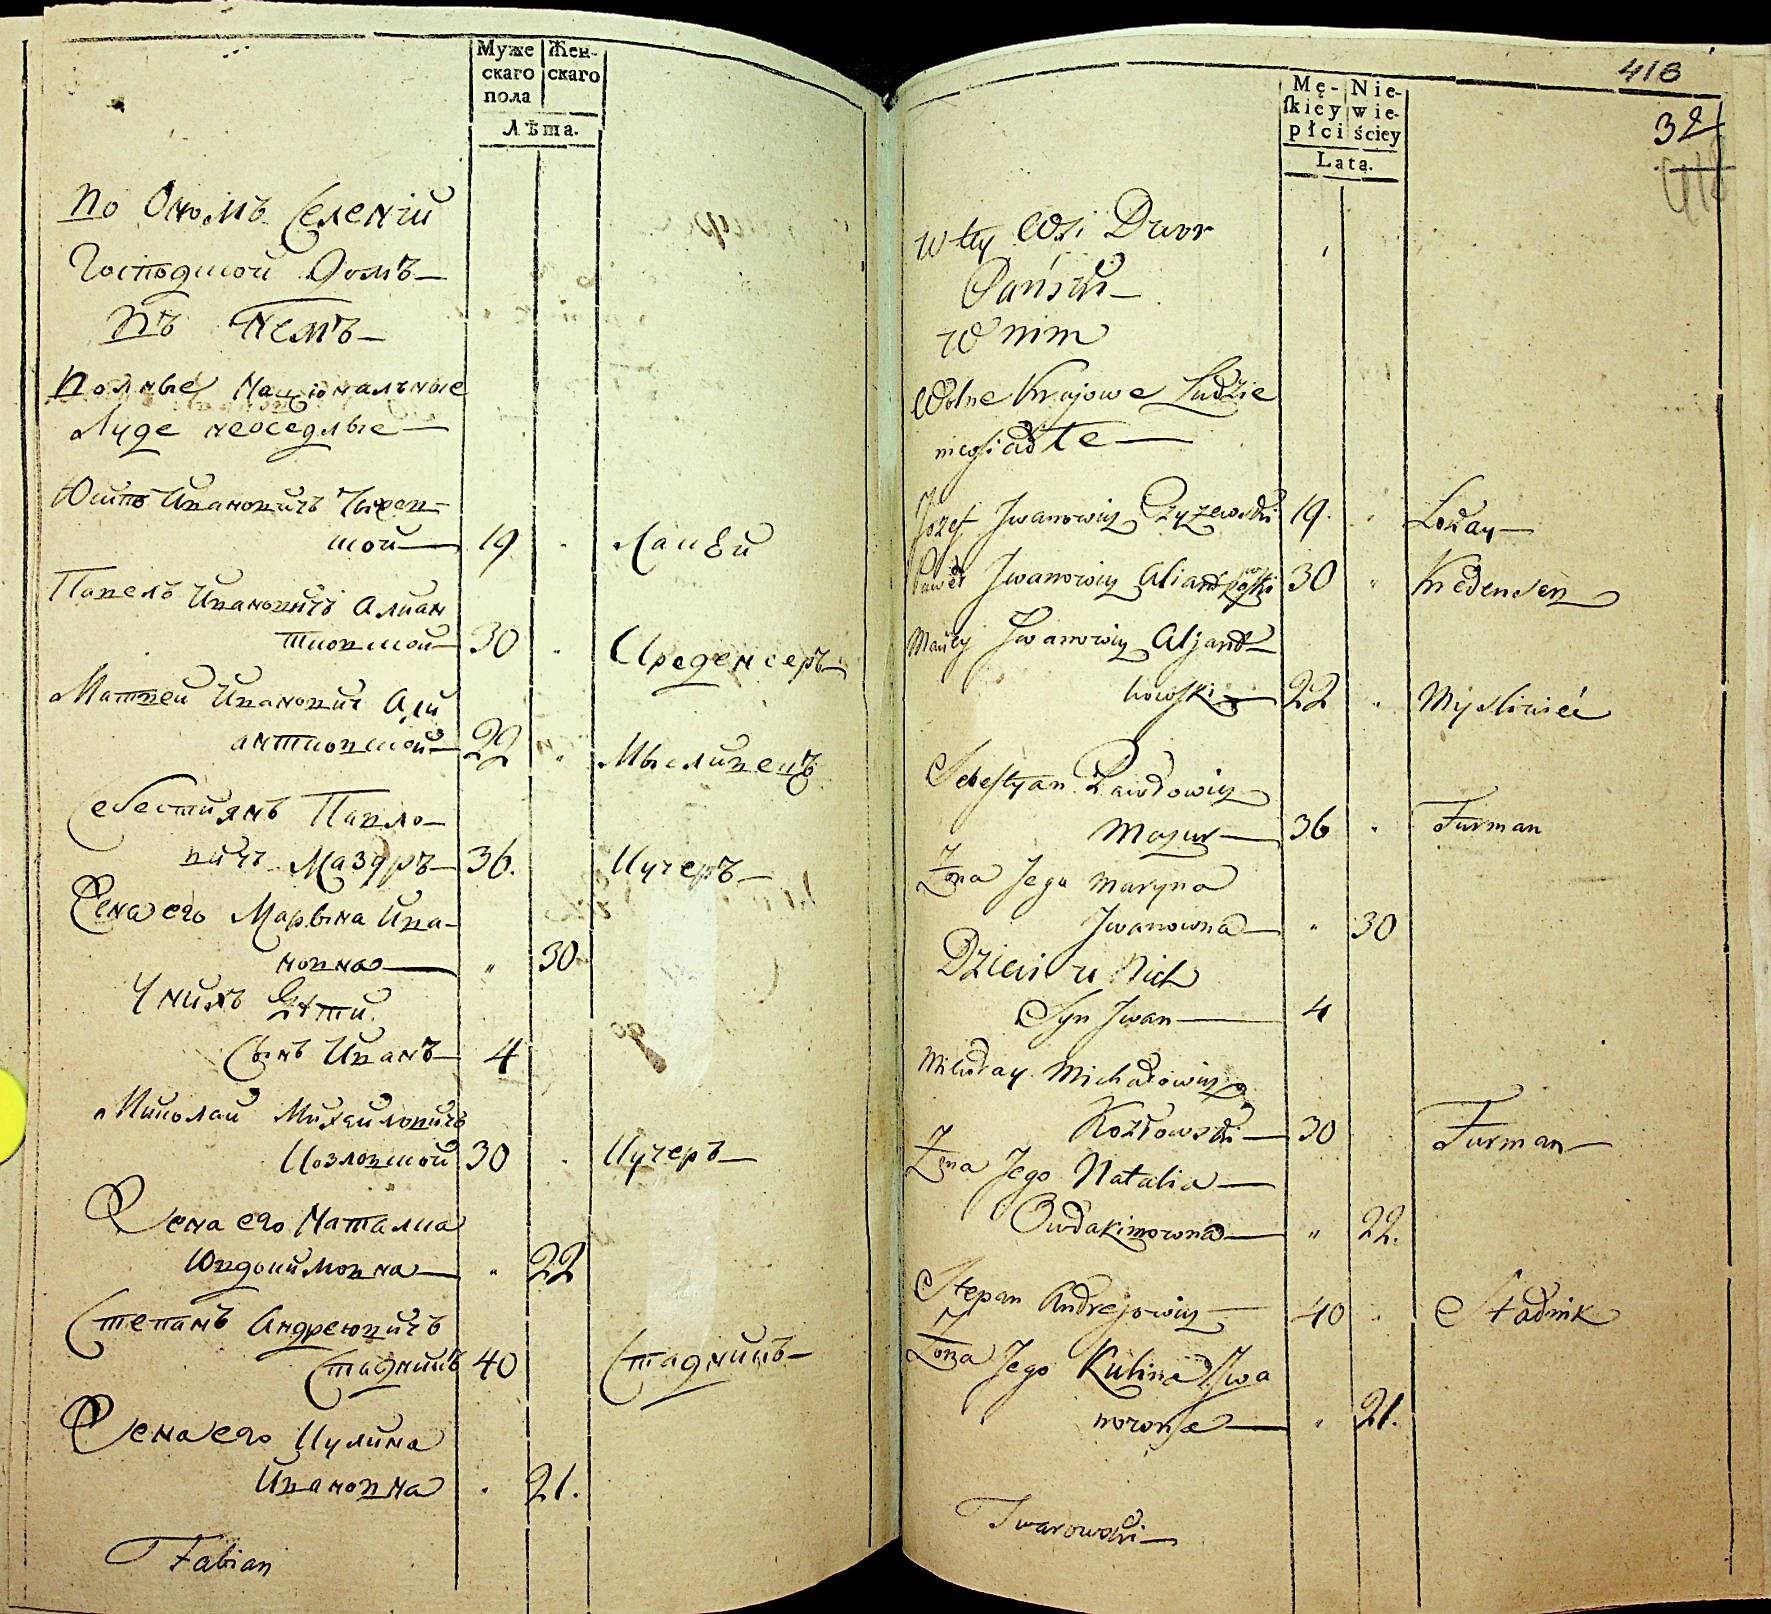 Муже
скаго
пола
Жен-
скаго
Лѣта.
во Ономъ Селенiи
Господской Домъ
въ Немъ
вольные Нацiональные
Люде неоседлые
Юсипъ Ивановичъ
ской 19 Локай
Павелъ Ивановичъ Алиан
товской 30 Кределсеръ
Матвей Ивановичъ Али
антовской 22 Мысливецъ
Себестиянъ Павло-
вичъ Мазуръ 36. Кучеръ
Жена его Марьяна Ива-
новна " 30
У нихъ Дети.
Сынъ Иванъ 4
Николай Михайловичъ
Козловской 30 Кучеръ
Жена его Наталиа
Ювдокимовна " 22
Степанъ Андреювичъ
Стадникъ 40 Стадникъ
Жена его Кулина
Ивановна " 21.
Fabian
418
32
Mę-
ſkiey
płci
Nie-
wie-
ściey
Lata.
w tey Wsi Dwor
Pański
W nim
Wolne Krajowe Ludzie
nieosiadłe
Jozef Jwanowicz Czyżewski 19. " Lokay
Paweł Jwanowicz 30 " Kredenserz
Maciey Jwanowicz Aljant
kowski 22 " Mysliwiec
Sebestyan Pawłowicz
Mazur 36 " Furman
Zona Jego Maryna
Jwanowna " 30
Dzieci u Nich
Syn Jwan 4
Mikołay Michałowicz
Kozłowski 30 Furman
Zona Jego Natalia
Owdakimowna " 22.
Stepan Andrejowicz 40 " Stadnik
Zona Jego Kulina Jwa
nowna " 21.
Twarowski